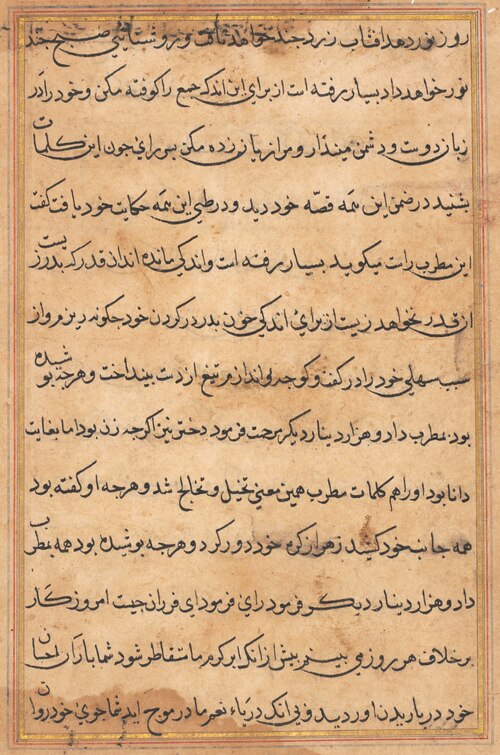 روز نور دهد افتاب زرد چند خواهد تافت و روشنایی صبح چند
نور خواهد داد بسیار رفته است از برای این اندکه جمع را کوفته مکن و خود را در
زبان دوست و دشمن مینداز و مرا زیان زده مکن پسر رای چون این کلمات
بشنید در ضمن این همه قصّه خود دید و در طی این همه حکایت خود یافت کفت
این مطرب راست میکوید بسیار رفته است و اندکی مانده اندازن قدر که بدرزیست
ان قدر نخواهد زیست از برای اندکی خون بدر در کردن خود جکونه ریزم و از
سبب سهلی خود را در کفت و کوی جه اندازم تیغ از دست بینداخت و هرچه پوشیده
بود بمطرب داد و هزار دینار دیکر مرحمت فرمود دختر نیز اکرچه زن بود اما بغایت
دانا بود او را هم کلمات مطرب همین معنی تخیل و تخالج شد و هرجه او کفته بود
همه جانب خود کشید زهر از کره خود دور کرد و هرچه پوشیده بود همه بمطرب
داد و هزار دینار دیکر فرمود رای فرمود ای فرزندان چیست امروز کار
برخلاف هر روز می بینم پیش از انک ابر کرم ما متقاطر شود شما باران احسان
خود در باریدن اوردید و بی انک دریاء نعم ما در موج اید شما جوی خود روان